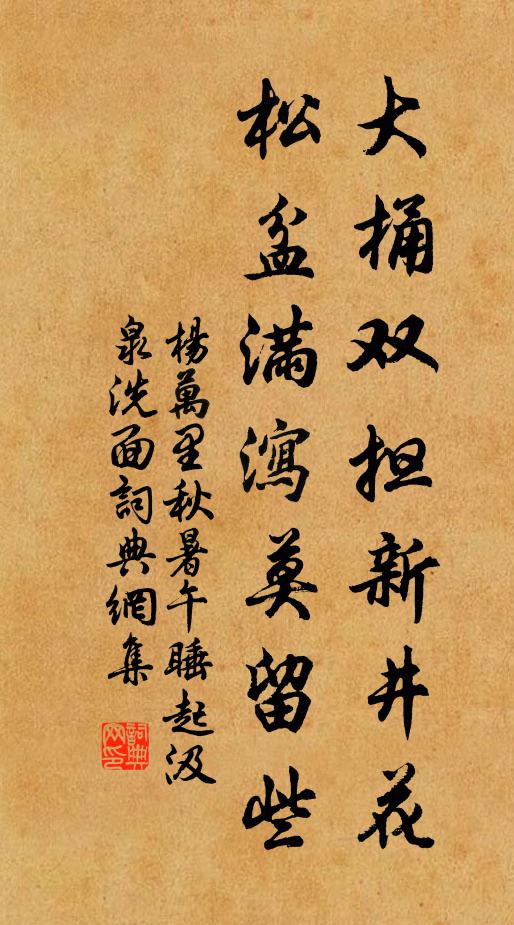 大桶双担新井花
松盆满瀉莫留些
楊萬里秋暑午睡起汲
泉洗面詞典網集
詞典
网印